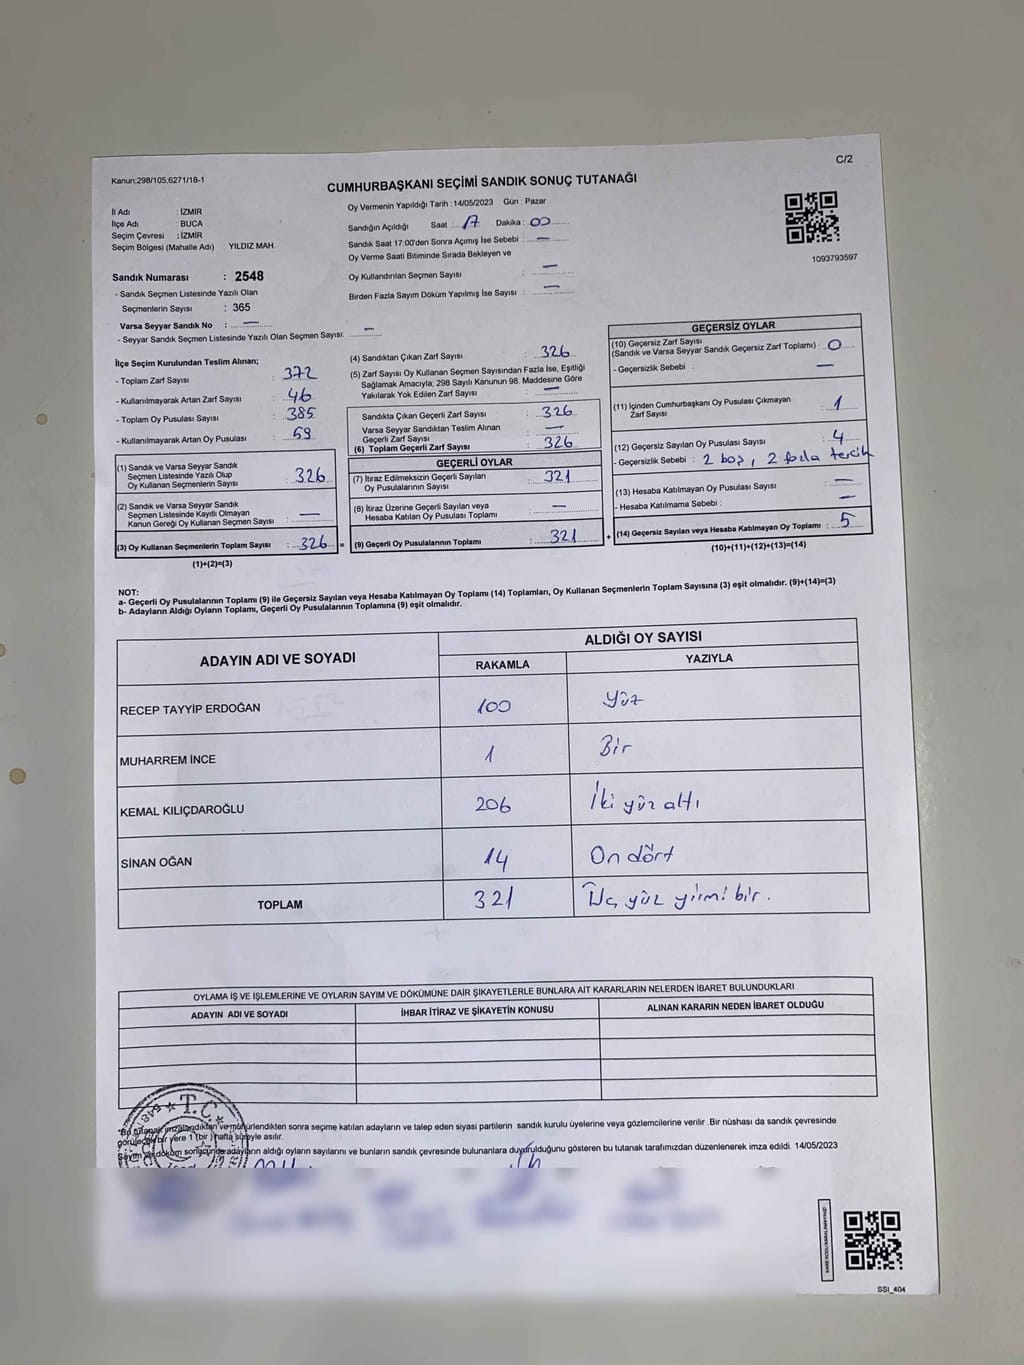 C/2
Kanun:298/105,6271/18-1
CUMHURBAŞKANI SEÇİMİ SANDIK SONUÇ TUTANAĞI
İl Adı : İZMİR
İlçe Adı : BUCA
Seçim Çevresi : İZMİR
Seçim Bölgesi (Mahalle Adı) : YILDIZ MAH.
Sandık Numarası : 2548
- Sandık Seçmen Listesinde Yazılı Olan
Seçmenlerin Sayısı : 365
Varsa Seyyar Sandık No : —
- Seyyar Sandık Seçmen Listesinde Yazılı Olan Seçmen Sayısı: —
Oy Vermenin Yapıldığı Tarih : 14/05/2023 Gün : Pazar
Sandığın Açıldığı Saat : 17 Dakika : 00
Sandık Saat 17:00'den Sonra Açımış İse Sebebi : —
Oy Verme Saati Bitiminde Sırada Bekleyen ve
Oy Kullandırılan Seçmen Sayısı : —
Birden Fazla Sayım Döküm Yapılmış İse Sayısı : —
1093793597
İlçe Seçim Kurulundan Teslim Alınan;
- Toplam Zarf Sayısı : 372
- Kullanılmayarak Artan Zarf Sayısı : 46
- Toplam Oy Pusulası Sayısı : 385
- Kullanılmayarak Artan Oy Pusulası : 59
(1) Sandık ve Varsa Seyyar Sandık
Seçmen Listesinde Yazılı Olup
Oy Kullanan Seçmenlerin Sayısı : 326
(2) Sandık ve Varsa Seyyar Sandık
Seçmen Listesinde Kayıtlı Olmayan
Kanun Gereği Oy Kullanan Seçmen Sayısı : —
(3) Oy Kullanan Seçmenlerin Toplam Sayısı : 326 =
(1)+(2)=(3)
(4) Sandıktan Çıkan Zarf Sayısı : 326
(5) Zarf Sayısı Oy Kullanan Seçmen Sayısından Fazla İse, Eşitliği
Sağlamak Amacıyla; 298 Sayılı Kanunun 98. Maddesine Göre
Yakılarak Yok Edilen Zarf Sayısı : —
Sandıkta Çıkan Geçerli Zarf Sayısı : 326
Varsa Seyyar Sandıktan Teslim Alınan
Geçerli Zarf Sayısı : —
(6) Toplam Geçerli Zarf Sayısı : 326
GEÇERLİ OYLAR
(7) İtiraz Edilmeksizin Geçerli Sayılan
Oy Pusulalarının Sayısı : 321
(8) İtiraz Üzerine Geçerli Sayılan veya
Hesaba Katılan Oy Pusulası Toplamı : —
(9) Geçerli Oy Pusulalarının Toplamı : 321 +
GEÇERSİZ OYLAR
(10) Geçersiz Zarf Sayısı
(Sandık ve Varsa Seyyar Sandık Geçersiz Zarf Toplamı) : 0
- Geçersizlik Sebebi : —
(11) İçinden Cumhurbaşkanı Oy Pusulası Çıkmayan
Zarf Sayısı : 1
(12) Geçersiz Sayılan Oy Pusulası Sayısı : 4
- Geçersizlik Sebebi : 2 boş, 2 fazla tercih
(13) Hesaba Katılmayan Oy Pusulası Sayısı : —
- Hesaba Katılmama Sebebi : —
(14) Geçersiz Sayılan veya Hesaba Katılmayan Oy Toplamı : 5
(10)+(11)+(12)+(13)=(14)
NOT:
a- Geçerli Oy Pusulalarının Toplamı (9) ile Geçersiz Sayılan veya Hesaba Katılmayan Oy Toplamı (14) Toplamları, Oy Kullanan Seçmenlerin Toplam Sayısına (3) eşit olmalıdır. (9)+(14)=(3)
b- Adayların Aldığı Oyların Toplamı, Geçerli Oy Pusulalarının Toplamına (9) eşit olmalıdır.
ADAYIN ADI VE SOYADI
ALDIĞI OY SAYISI
RAKAMLA YAZIYLA
RECEP TAYYİP ERDOĞAN 100 Yüz
MUHARREM İNCE 1 Bir
KEMAL KILIÇDAROĞLU 206 İki yüz altı
SİNAN OĞAN 14 On dört
TOPLAM 321 Üç yüz yirmi bir.
OYLAMA İŞ VE İŞLEMLERİNE VE OYLARIN SAYIM VE DÖKÜMÜNE DAİR ŞİKAYETLERLE BUNLARA AİT KARARLARIN NELERDEN İBARET BULUNDUKLARI
ADAYIN ADI VE SOYADI İHBAR İTİRAZ VE ŞİKAYETİN KONUSU ALINAN KARARIN NEDEN İBARET OLDUĞU
T.C.
*Bu tutanak imzalandıktan ve mühürlendikten sonra seçime katılan adayların ve talep eden siyasi partilerin sandık kurulu üyelerine veya gözlemcilerine verilir .Bir nüshası da sandık çevresinde
görülecek bir yere 1 (bir ) hafta süreyle asılır.
Sayım ve döküm sonucunda adayların aldığı oyların sayılarını ve bunların sandık çevresinde bulunanlara duyurulduğunu gösteren bu tutanak tarafımızdan düzenlenerek imza edildi. 14/05/2023
SSI_404